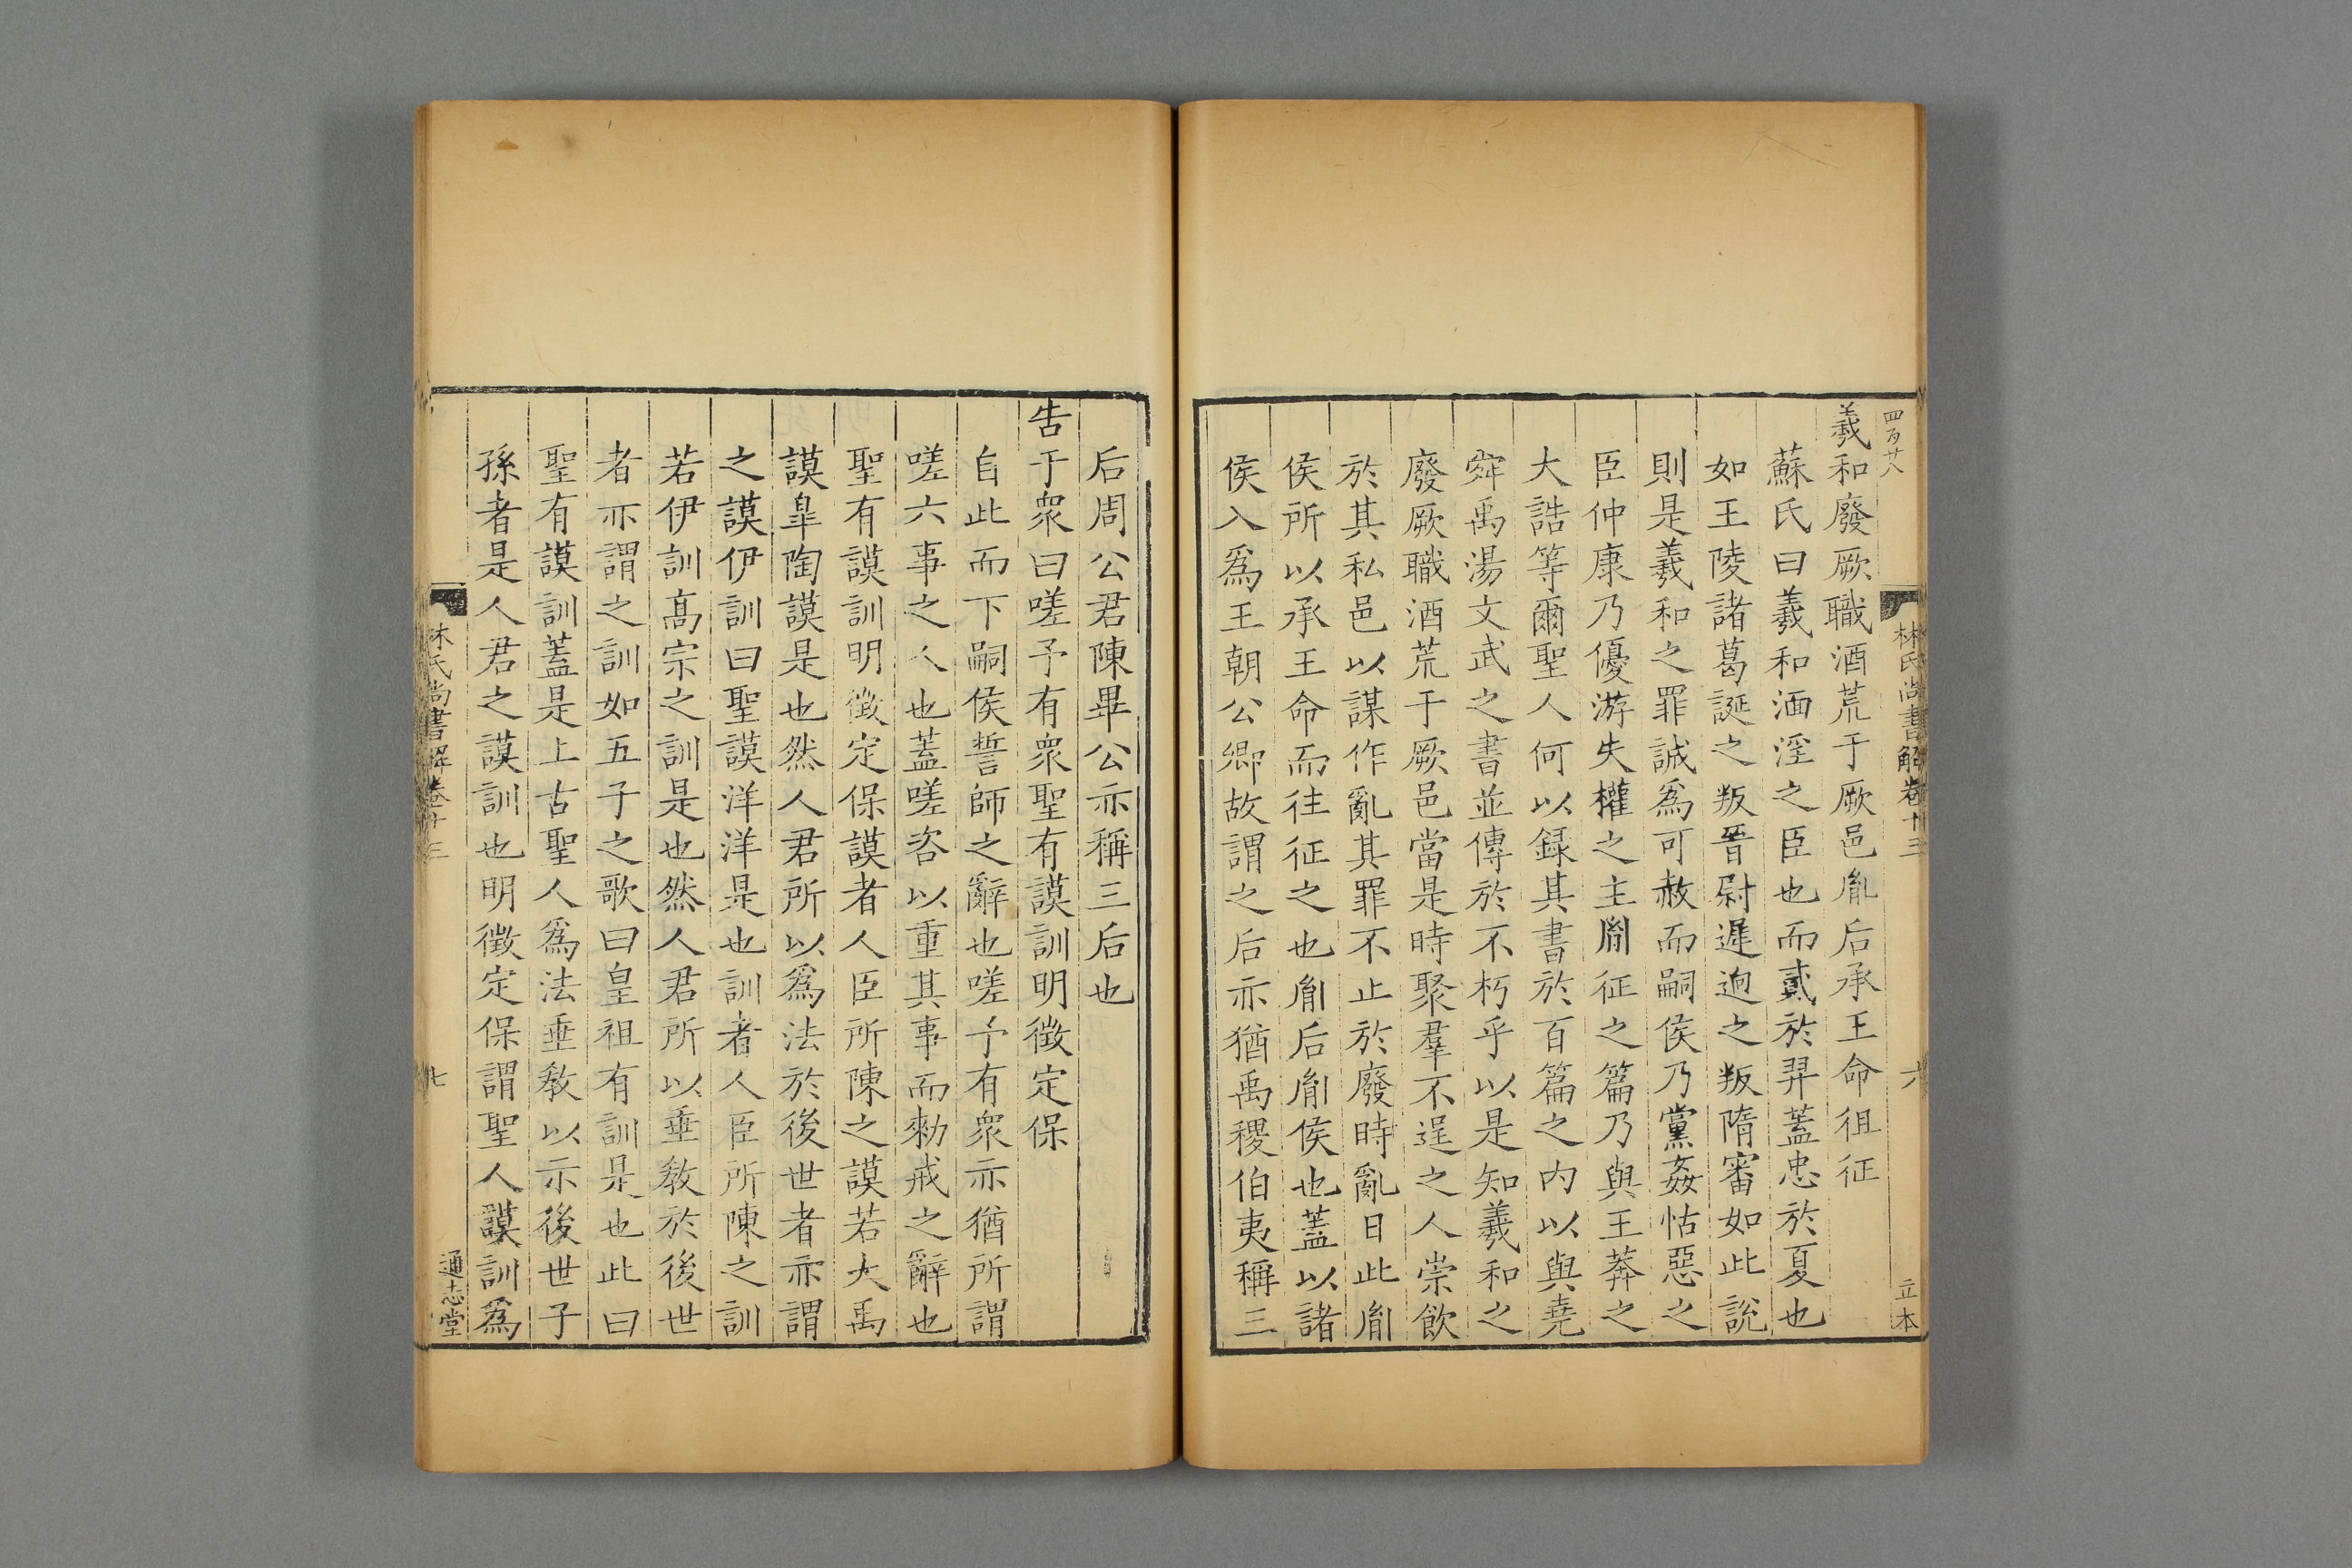 四百廿八
林氏尚書解卷十三
六
立本
羲和廢厥職酒荒于厥邑胤后承王命徂征
蘇氏曰羲和湎淫之臣也而貳於羿蓋忠於夏也
如王陵諸葛誕之叛晉尉遲迥之叛隋審如此說
則是羲和之罪誠為可赦而嗣侯乃黨姦怙惡之
臣仲康乃優游失權之主胤征之篇乃與王莽之
大誥等爾聖人何以録其書於百篇之内以與堯
舜禹湯文武之書並傳於不朽乎以是知羲和之
廢厥職酒荒于厥邑當是時聚羣不逞之人崇飲
於其私邑以謀作亂其罪不止於廢時亂日此胤
侯所以承王命而往征之也胤后胤侯也蓋以諸
侯入爲王朝公卿故謂之后亦猶禹稷伯夷稱三
后周公君陳畢公亦稱三后也
告于衆曰嗟予有衆聖有謨訓明徵定保
自此而下嗣侯誓師之辭也嗟予有衆亦猶所謂
嗟六事之人也蓋嗟咨以重其事而勑戒之辭也
聖有謨訓明徵定保謨者人臣所陳之謨若大禹
謨臯陶謨是也然人君所以爲法於後世者亦謂
之謨伊訓曰聖謨洋洋是也訓者人臣所陳之訓
若伊訓高宗之訓是也然人君所以垂教於後世
者亦謂之訓如五子之歌曰皇祖有訓是也此曰
聖有謨訓蓋是上古聖人爲法垂教以示後世子
孫者是人君之謨訓也明徵定保謂聖人謨訓爲
林氏尚書解卷十三
七
通志堂